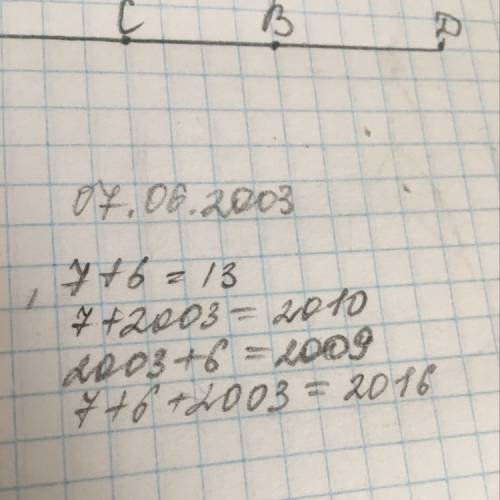 C B D
07.06.2003
7+6=13
7+2003=2010
2003+6=2009
7+6+2003=2016